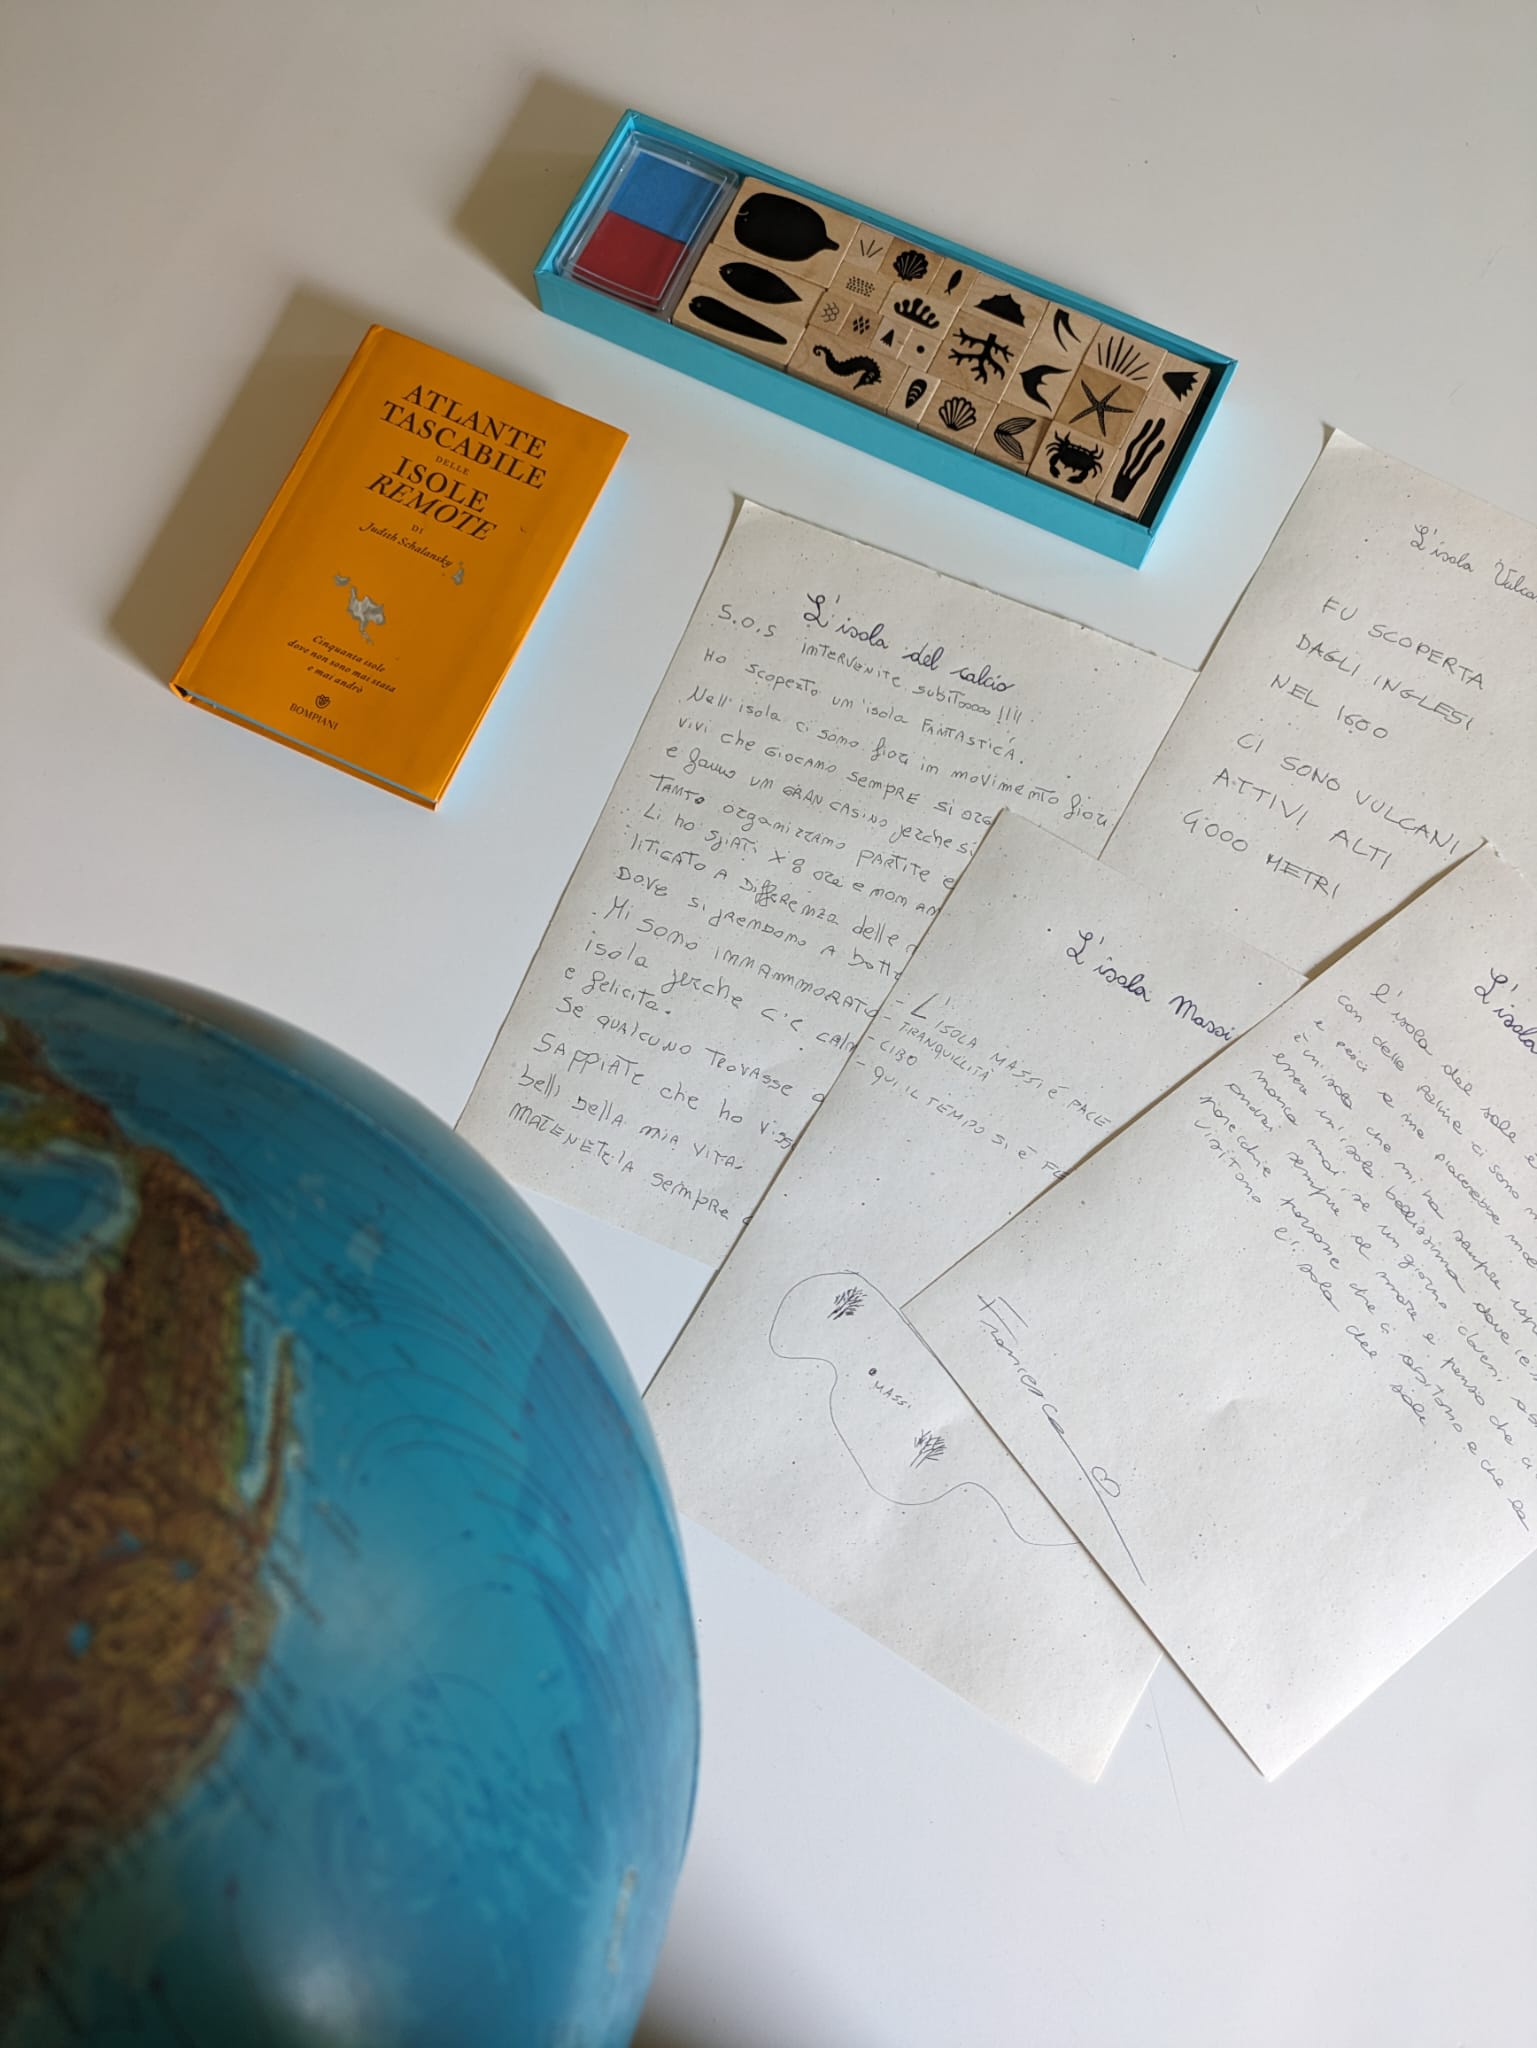 ATLANTE
TASCABILE
DELLE
ISOLE
REMOTE
DI
Judith Schalansky
Cinquanta isole
dove non sono mai stata
e mai andrò
BOMPIANI
L'isola del calcio
S.O.S INTERVENITE SUBITooooo !!!!
HO SCOPERTO UN'ISOLA FANTASTICA.
Nell'isola ci sono fiori in movimento fiori
VIVI CHE GIOCANO SEMPRE SI
E fanno UN GRAN CASINO perche si
TANTO organizzano PARTITE e
Li ho spiati X 8 ore e non
LITIGATO A DIFFERENZA delle
DOVE si prendono A botte
Mi SONO INNAMMORATO
isola perche C'è
e felicita.
Se QUALCUNO TROVASSE
SAPPIATE che ho
belli della MIA VITA.
MATENETELA Sempre
L'isola
FU SCOPERTA
DAGLI INGLESI
NEL 1600
CI SONO VULCANI
ATTIVI ALTI
4000 METRI
L'isola Massi
- L'ISOLA MASSI É PACE
- TRANQUILLITÀ
- CIBO
- QUI IL TEMPO SI É
MASSI
L'isola
l'isola del sole è
con delle palme ci sono
e pesci a me piacerebbe
è un'isola che mi ha sempre
essere un'isola bellissima dove
manca mai, se un giorno dovessi
andrei sempre al mare e penso che ci
parecchie persone che ci abitano e che la
visitano l'isola del sole.
Francesca